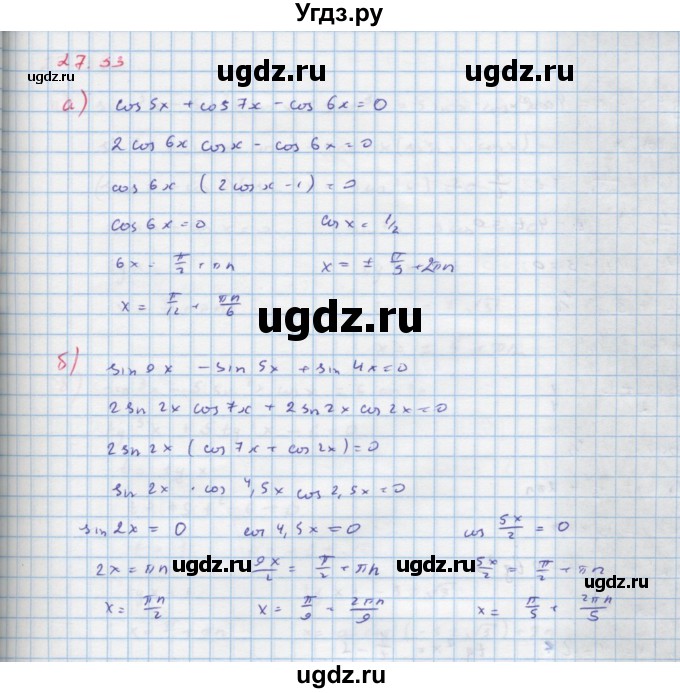 Угдз.ру
27.33
ugdz.ru ugdz.ru ugdz.ru
а) cos 5x + cos 7x - cos 6x = 0
2 cos 6x cos x - cos 6x = 0
cos 6x (2 cos x - 1) = 0
cos 6x = 0 cos x = 1/2
6x = π/2 + πn x = ± π/3 + 2πn
x = π/12 + πn/6
ugdz.ru
б) sin 9x - sin 5x + sin 4x = 0
2 sin 2x cos 7x + 2 sin 2x cos 2x = 0
2 sin 2x (cos 7x + cos 2x) = 0
sin 2x · cos 4,5x cos 2,5x = 0
sin 2x = 0 cos 4,5x = 0 cos 5x/2 = 0
ugdz.ru ugdz.ru ugdz.ru
2x = πn 9x/2 = π/2 + πn 5x/2 = π/2 + πn
x = πn/2 x = π/9 + 2πn/9 x = π/5 + 2πn/5
ugdz.ru ugdz.ru ugdz.ru